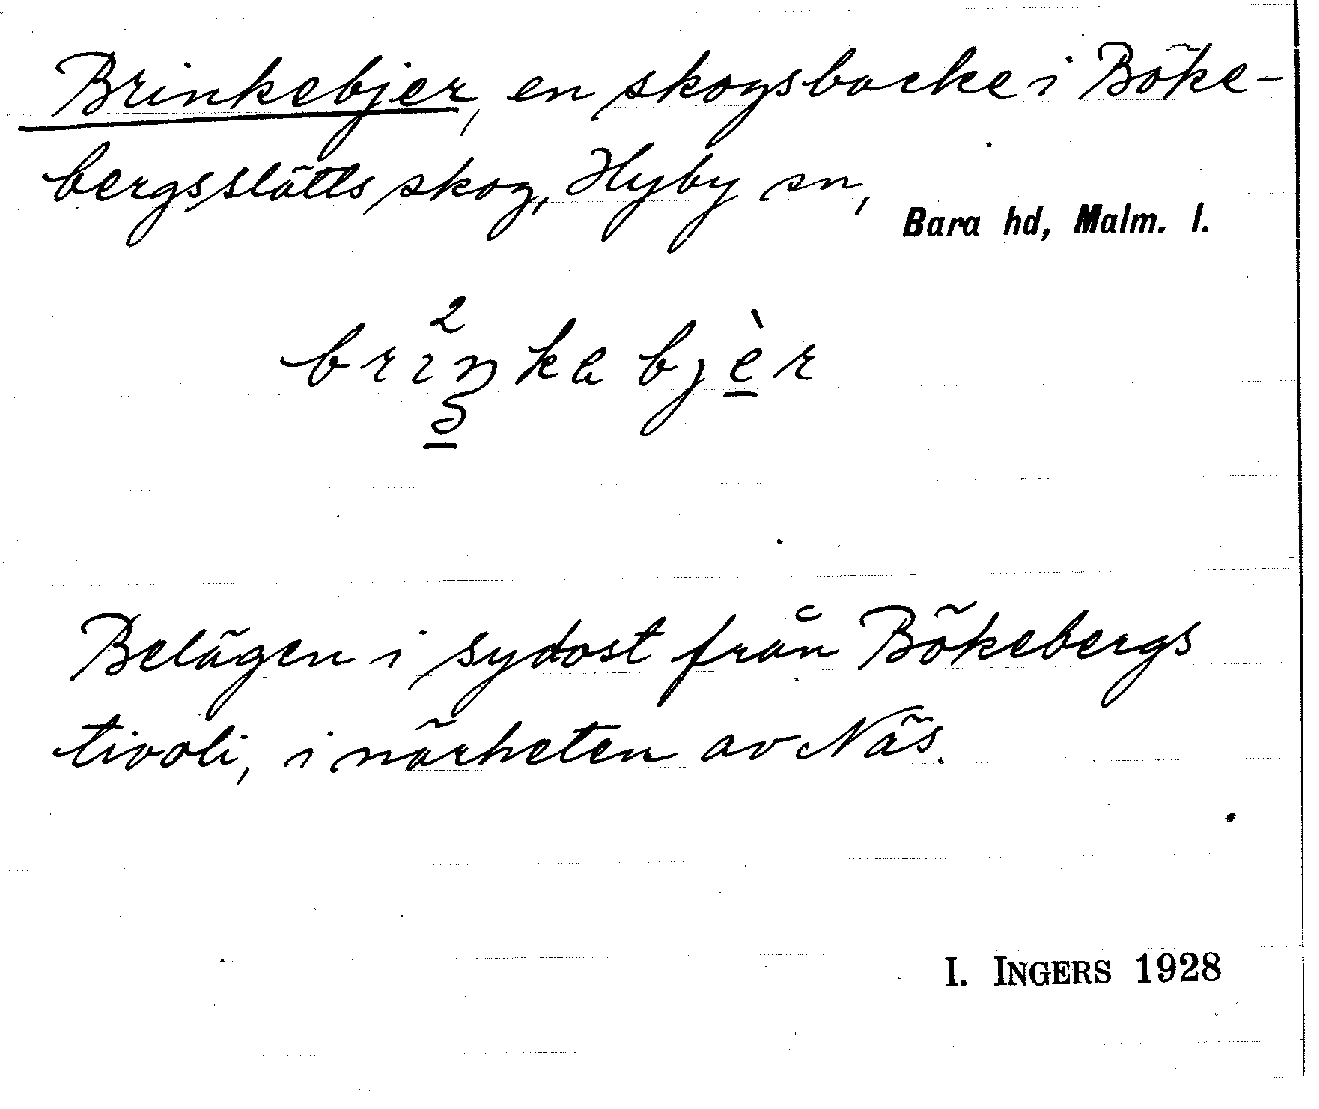 Brinkebjer, en skogsbacke i Böke-
bergsslätts skog, Hyby sn,
Bara hd, Malm. l.
brıŋkabjèr
Belägen i sydost från Bökebergs
tivoli, i närheten av Näs.
I. INGERS 1928